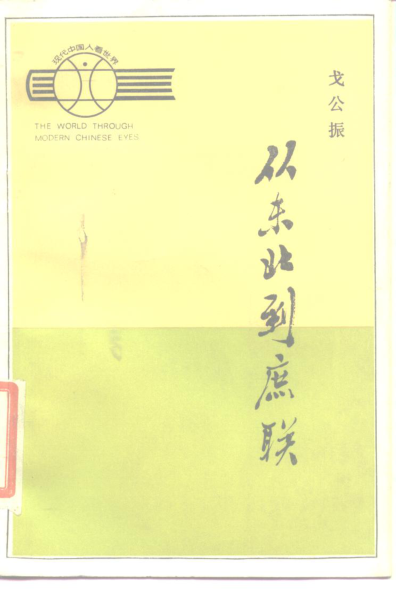 现代中国人看世界
THE WORLD THROUGH
MODERN CHINESE EYES
戈公振
从东北到庶联